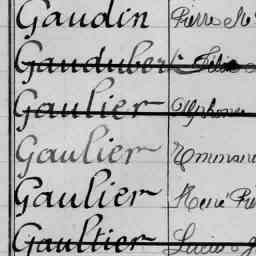 Gaudin Pierre M
Gaudubert Félix
Gaulier Alphonse
Gaulier Emman
Gaulier René Pi
Gaultier Lucien